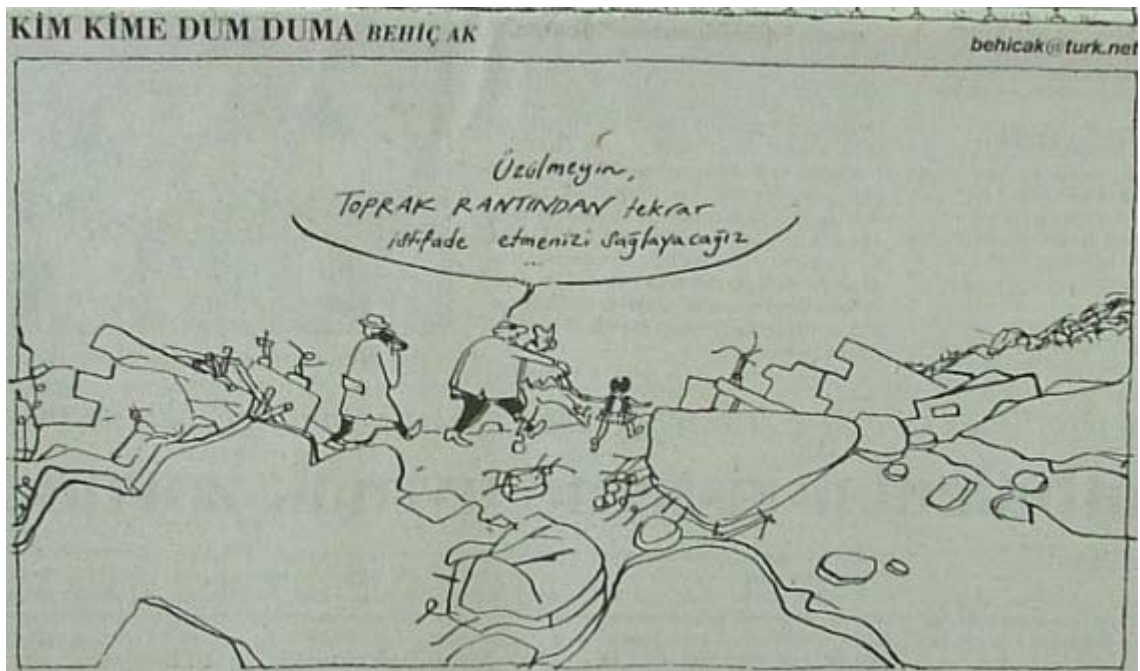 KİM KİME DUM DUMA BEHİÇ AK
behicak@turk.net
Üzülmeyin,
TOPRAK RANTINDAN tekrar
istifade etmenizi sağlayacağız
...